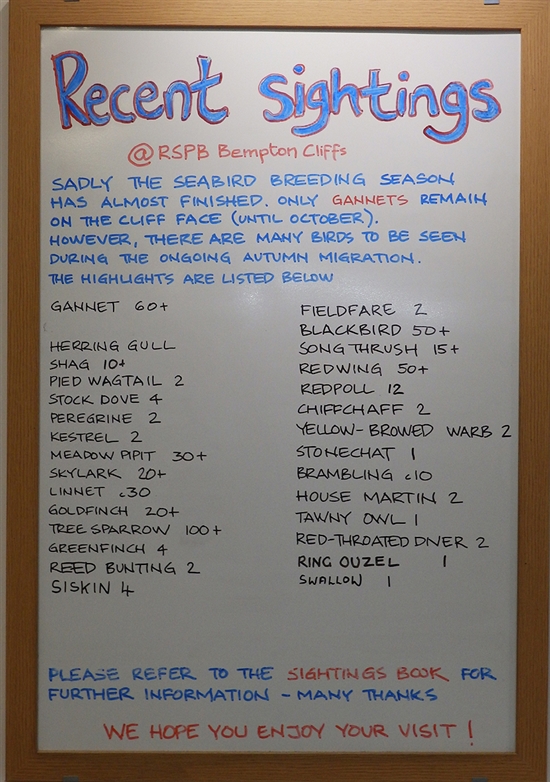 Recent Sightings
@ RSPB Bempton Cliffs
SADLY THE SEABIRD BREEDING SEASON
HAS ALMOST FINISHED. ONLY GANNETS REMAIN
ON THE CLIFF FACE (UNTIL OCTOBER).
HOWEVER, THERE ARE MANY BIRDS TO BE SEEN
DURING THE ONGOING AUTUMN MIGRATION.
THE HIGHLIGHTS ARE LISTED BELOW
GANNET 60+
HERRING GULL
SHAG 10+
PIED WAGTAIL 2
STOCK DOVE 4
PEREGRINE 2
KESTREL 2
MEADOW PIPIT 30+
SKYLARK 20+
LINNET c30
GOLDFINCH 20+
TREE SPARROW 100+
GREENFINCH 4
REED BUNTING 2
SISKIN 4
FIELDFARE 2
BLACKBIRD 50+
SONG THRUSH 15+
REDWING 50+
REDPOLL 12
CHIFFCHAFF 2
YELLOW-BROWED WARB 2
STONECHAT 1
BRAMBLING c10
HOUSE MARTIN 2
TAWNY OWL 1
RED-THROATED DIVER 2
RING OUZEL 1
SWALLOW 1
PLEASE REFER TO THE SIGHTINGS BOOK FOR
FURTHER INFORMATION - MANY THANKS
WE HOPE YOU ENJOY YOUR VISIT!